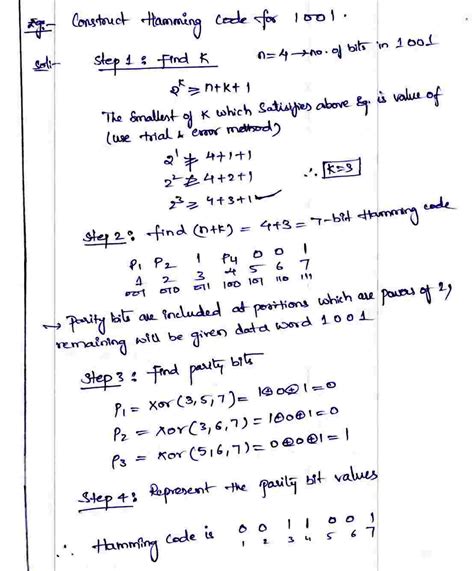 Eg:- Construct Hamming Code for 1001.
Sol:- Step 1: Find K n=4→no. of bits in 1001
2^k ≥ n+k+1
The Smallest of K which Satisfies above Eq. is value of
(use trial & error method)
2^1 ≱ 4+1+1
2^2 ≱ 4+2+1 ∴ K=3
2^3 ≥ 4+3+1 ✓
Step 2: find (n+k) = 4+3 = 7-bit Hamming code
P1 P2 1 P4 0 0 1
1 2 3 4 5 6 7
001 010 011 100 101 110 111
→ Parity bits are included at positions which are powers of 2,
remaining will be given data word 1001
Step 3: Find parity bits
P1 = Xor(3,5,7) = 1⊕0⊕1=0
P2 = Xor(3,6,7) = 1⊕0⊕1=0
P3 = Xor(5,6,7) = 0⊕0⊕1=1
Step 4: Represent the parity bit values
∴ Hamming Code is 0 0 1 1 0 0 1
1 2 3 4 5 6 7